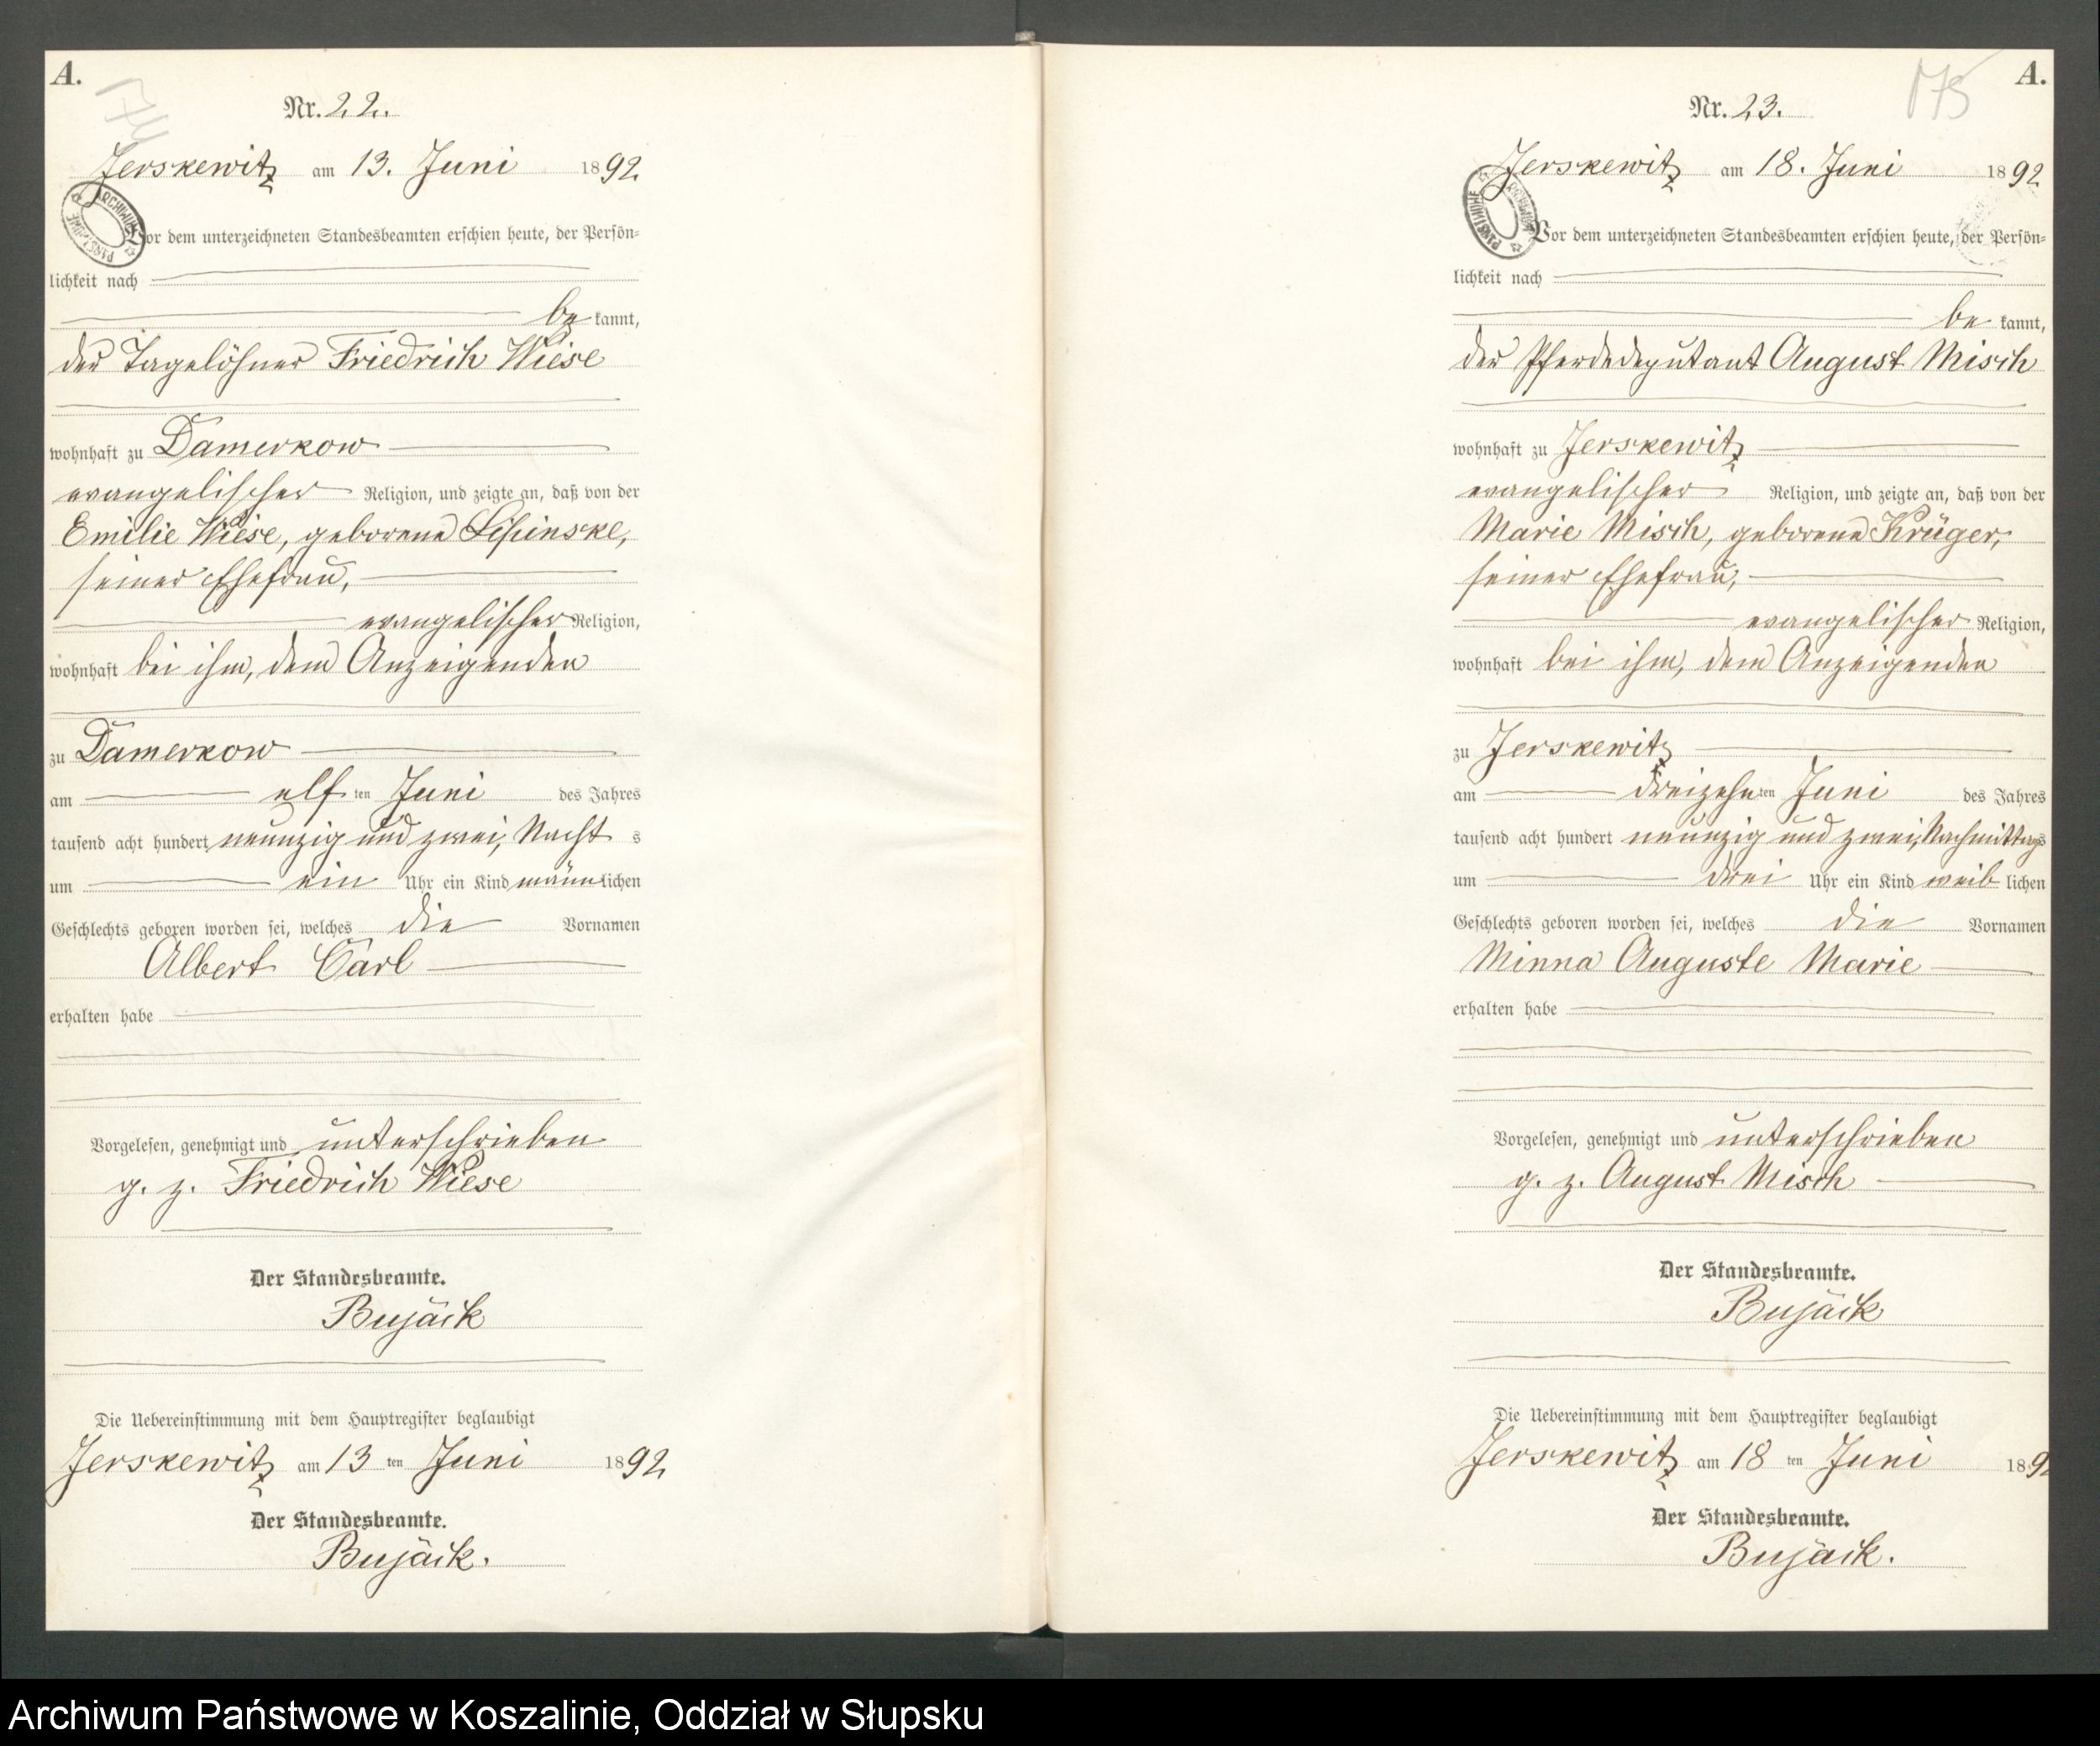 A.
174
Nr. 22.
Jerskewitz am 13. Juni 1892
ARCHIWUM PAŃSTWOWE
Vor dem unterzeichneten Standesbeamten erschien heute, der Persön-
lichkeit nach
be kannt,
der Tagelöhner Friedrich Wiese
wohnhaft zu Damerkow
evangelischer Religion, und zeigte an, daß von der
Emilie Wiese, geborene Lipinske,
seiner Ehefrau,
evangelischer Religion,
wohnhaft bei ihm, dem Anzeigenden
zu Damerkow
am elf ten Juni des Jahres
tausend acht hundert neunzig und zwei, Nacht s
um ein Uhr ein Kind männlichen
Geschlechts geboren worden sei, welches die Vornamen
Albert Carl
erhalten habe
Vorgelesen, genehmigt und unterschrieben
g. z. Friedrich Wiese
Der Standesbeamte.
Bujäck
Die Uebereinstimmung mit dem Hauptregister beglaubigt
Jerskewitz am 13 ten Juni 1892
Der Standesbeamte.
Bujäck.
175
A.
Nr. 23.
Jerskewitz am 18. Juni 1892
ARCHIWUM PAŃSTWOWE
Vor dem unterzeichneten Standesbeamten erschien heute, der Persön-
lichkeit nach
be kannt,
der Pferdedeputant August Misch
wohnhaft zu Jerskewitz
evangelischer Religion, und zeigte an, daß von der
Marie Misch, geborene Krüger,
seiner Ehefrau,
evangelischer Religion,
wohnhaft bei ihm, dem Anzeigenden
zu Jerskewitz
am dreizehn ten Juni des Jahres
tausend acht hundert neunzig und zwei, Nachmittags
um drei Uhr ein Kind weib lichen
Geschlechts geboren worden sei, welches die Vornamen
Minna Auguste Marie
erhalten habe
Vorgelesen, genehmigt und unterschrieben
g. z. August Misch
Der Standesbeamte.
Bujäck
Die Uebereinstimmung mit dem Hauptregister beglaubigt
Jerskewitz am 18 ten Juni 1892
Der Standesbeamte.
Bujäck.
Archiwum Państwowe w Koszalinie, Oddział w Słupsku